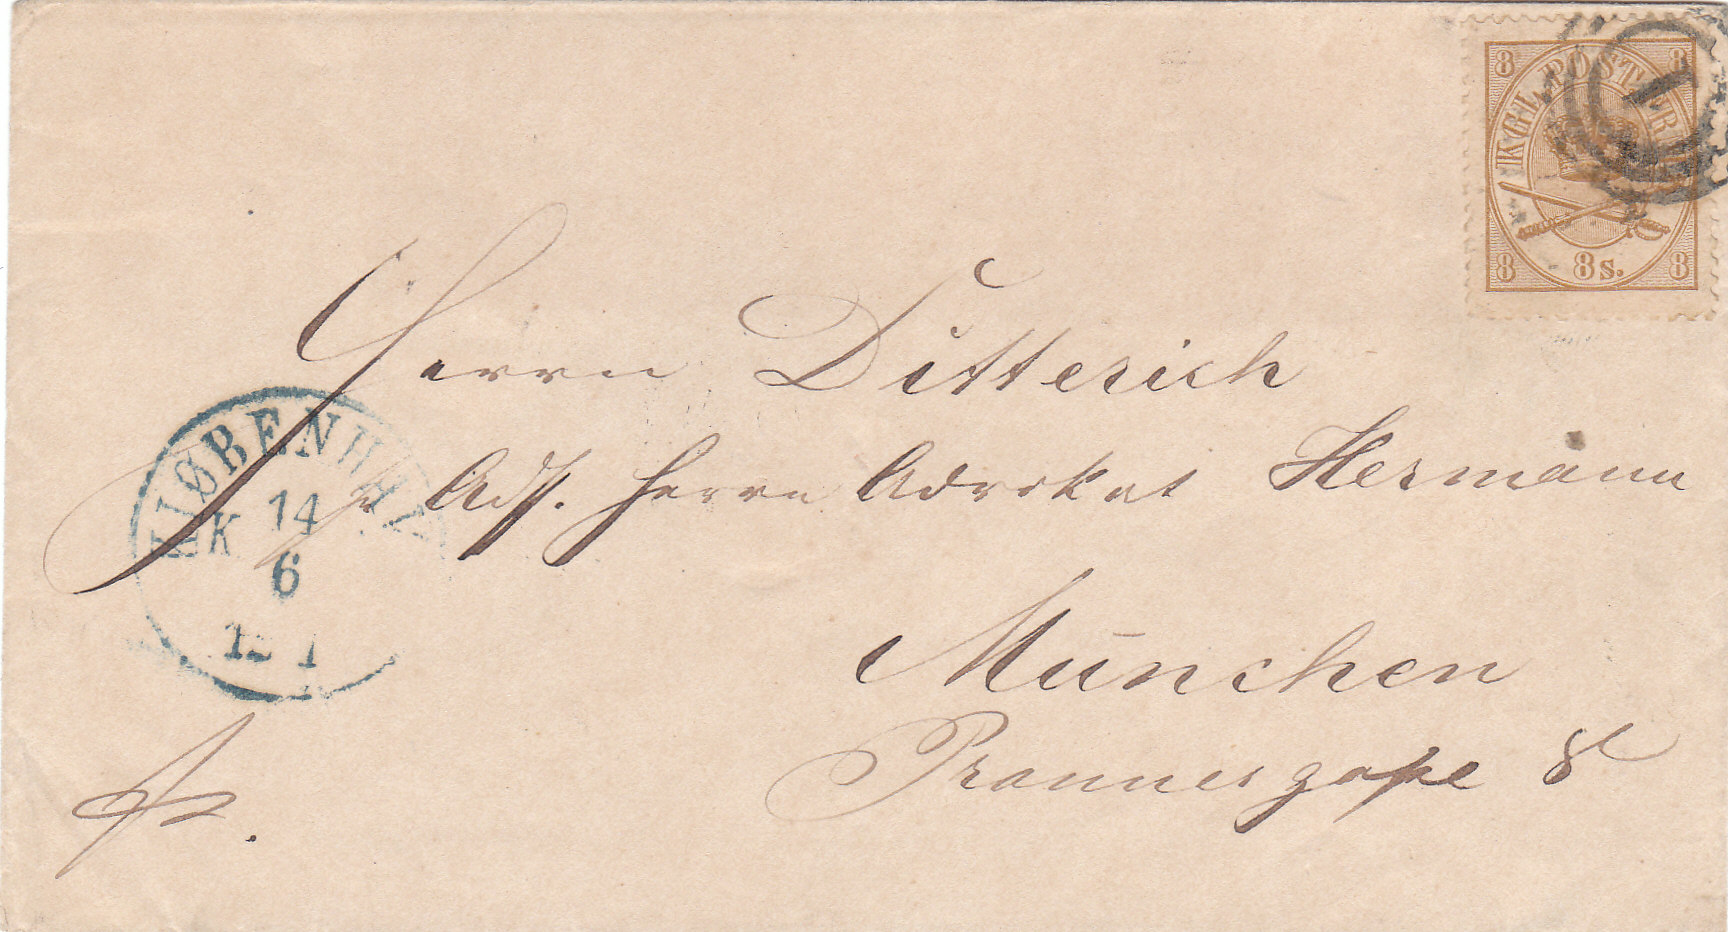 8 8
KGL. POST FRM
8 8s. 8
1
Herrn Ditterich
Adr. Herrn Advokat Hermann
München
Prannergaße 8
fr.
KIØBENHAV
K 14
6